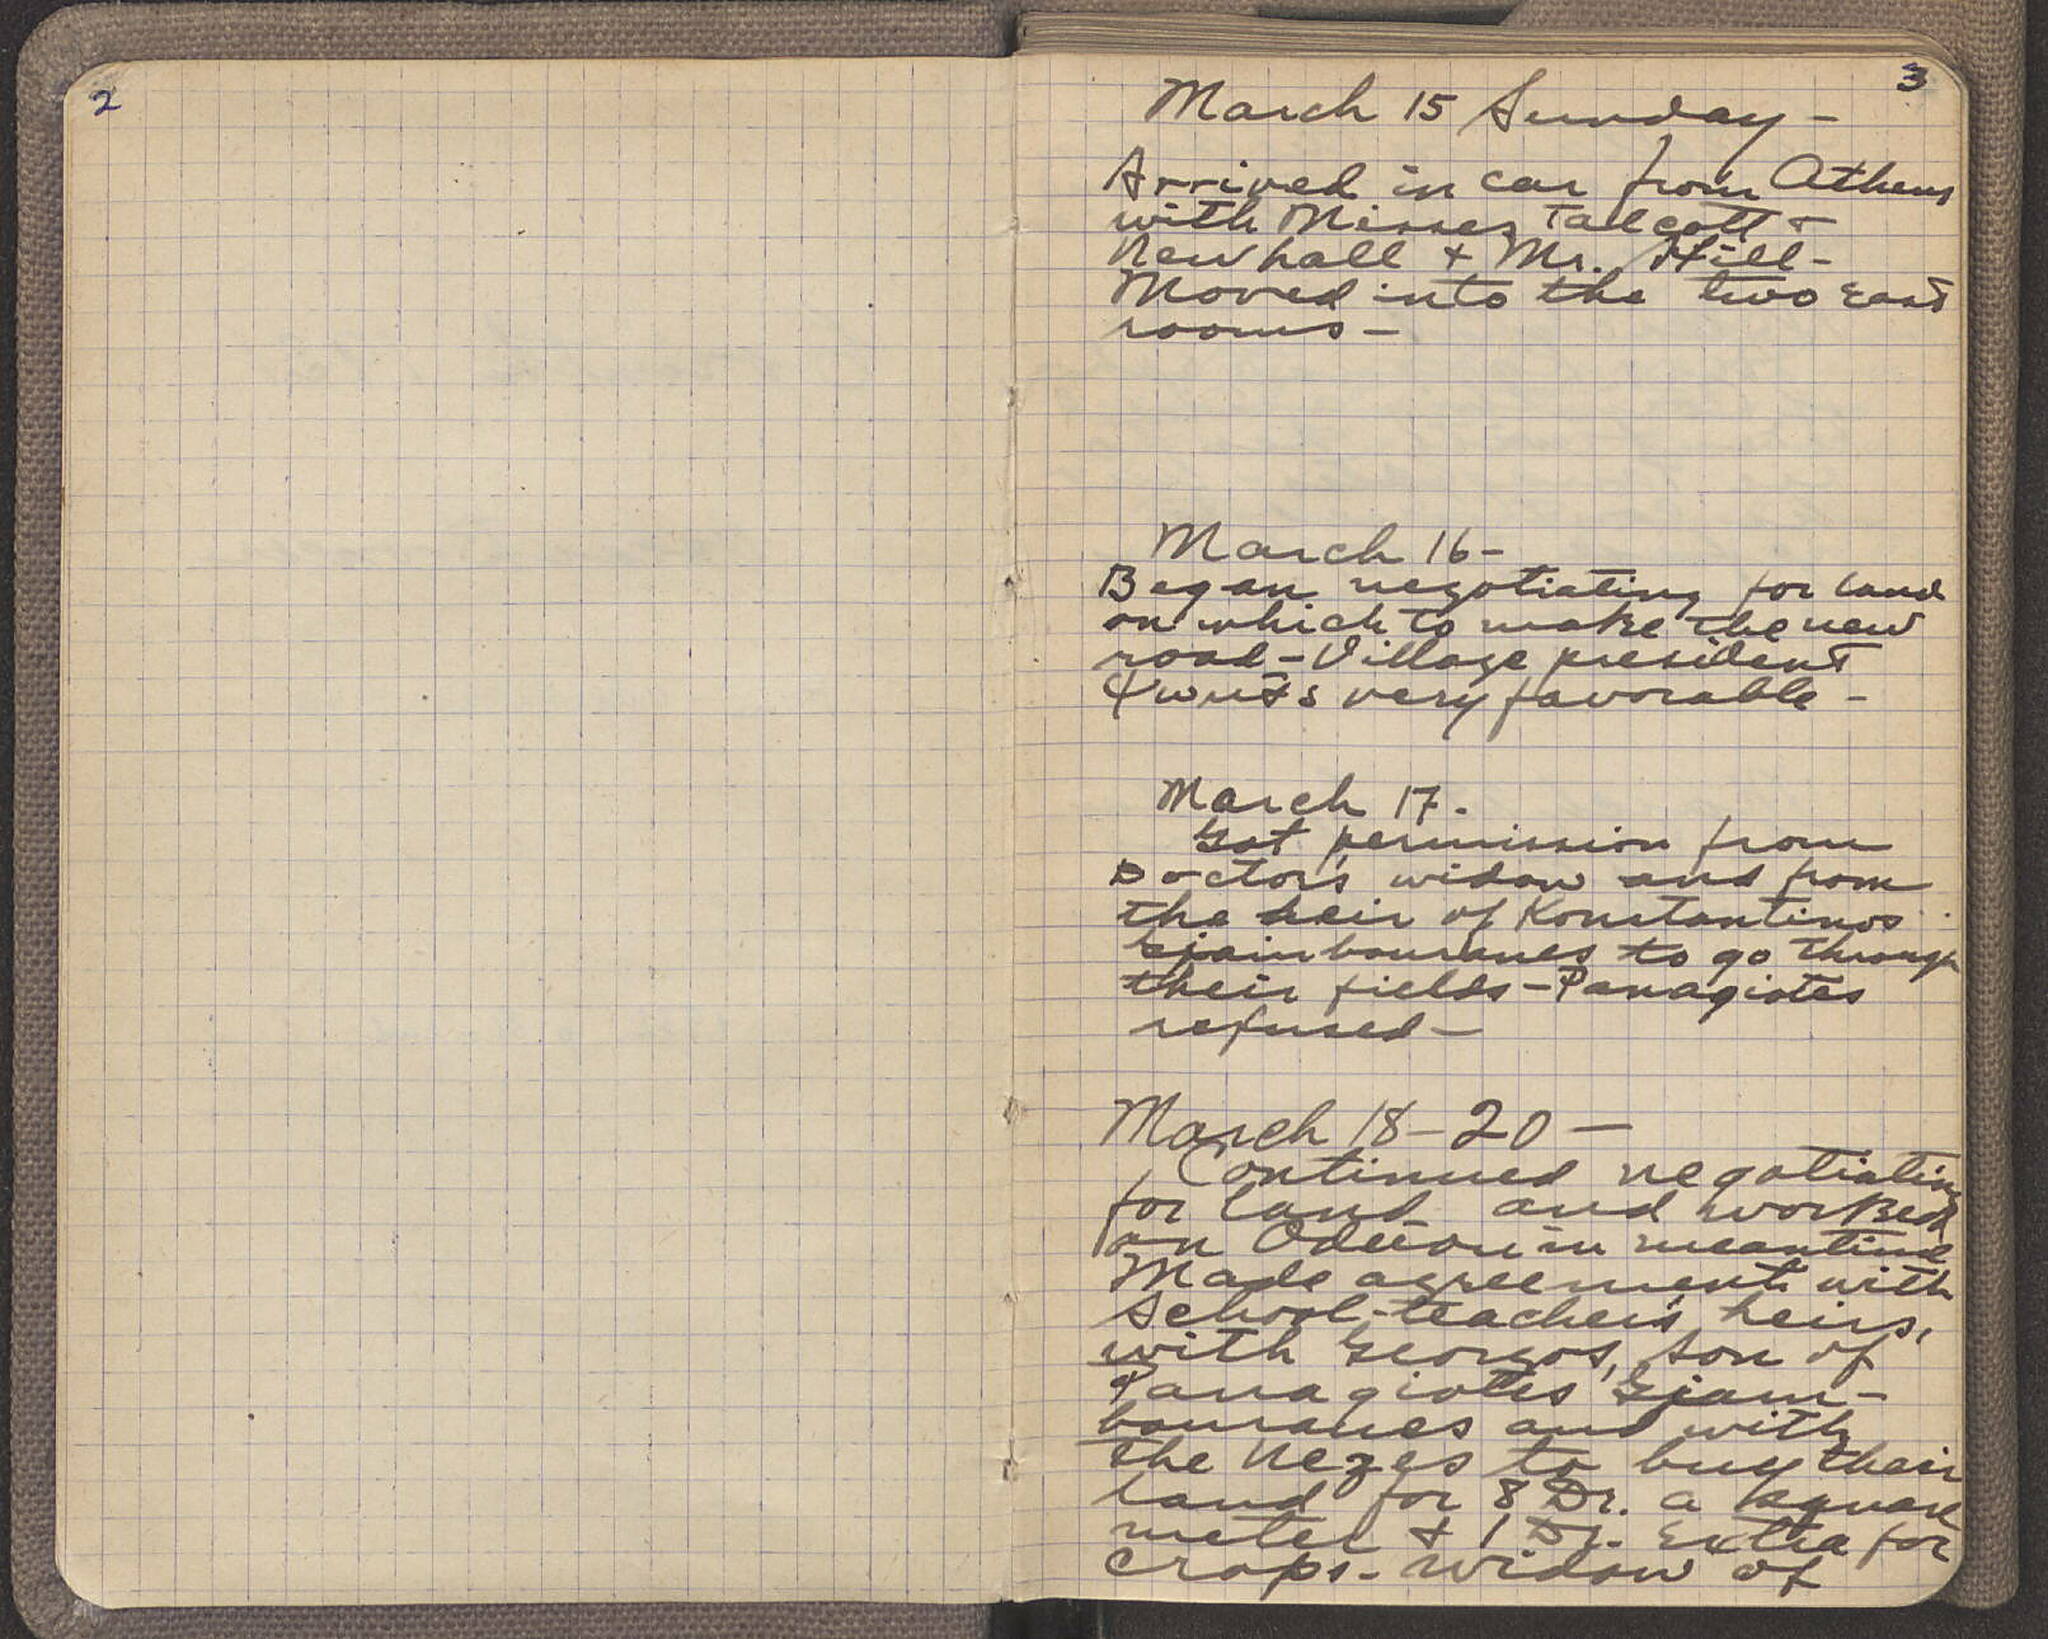 2
3
March 15 Sunday -
Arrived in car from Athens
with Misses Talcott +
Newhall + Mr. Hill -
Moved into the two East
rooms -
March 16 -
Began negotiating for land
on which to make the new
road - Village president
very favorable -
March 17.
Got permission from
Doctor's widow and from
the heir of Konstantinos
Gjambouranes to go through
their fields - Panagiotes
refused -
March 18 - 20 -
Continued negotiating
for land and worked
on Odeion in meantime
Made agreement with
School-teacher's heirs,
with Georgos, son of
Panagiotes Gjam-
bouranes and with
the Nezes to buy their
land for 8 Dr. a square
meter + 1 Dr. Extra for
crops - Widow of